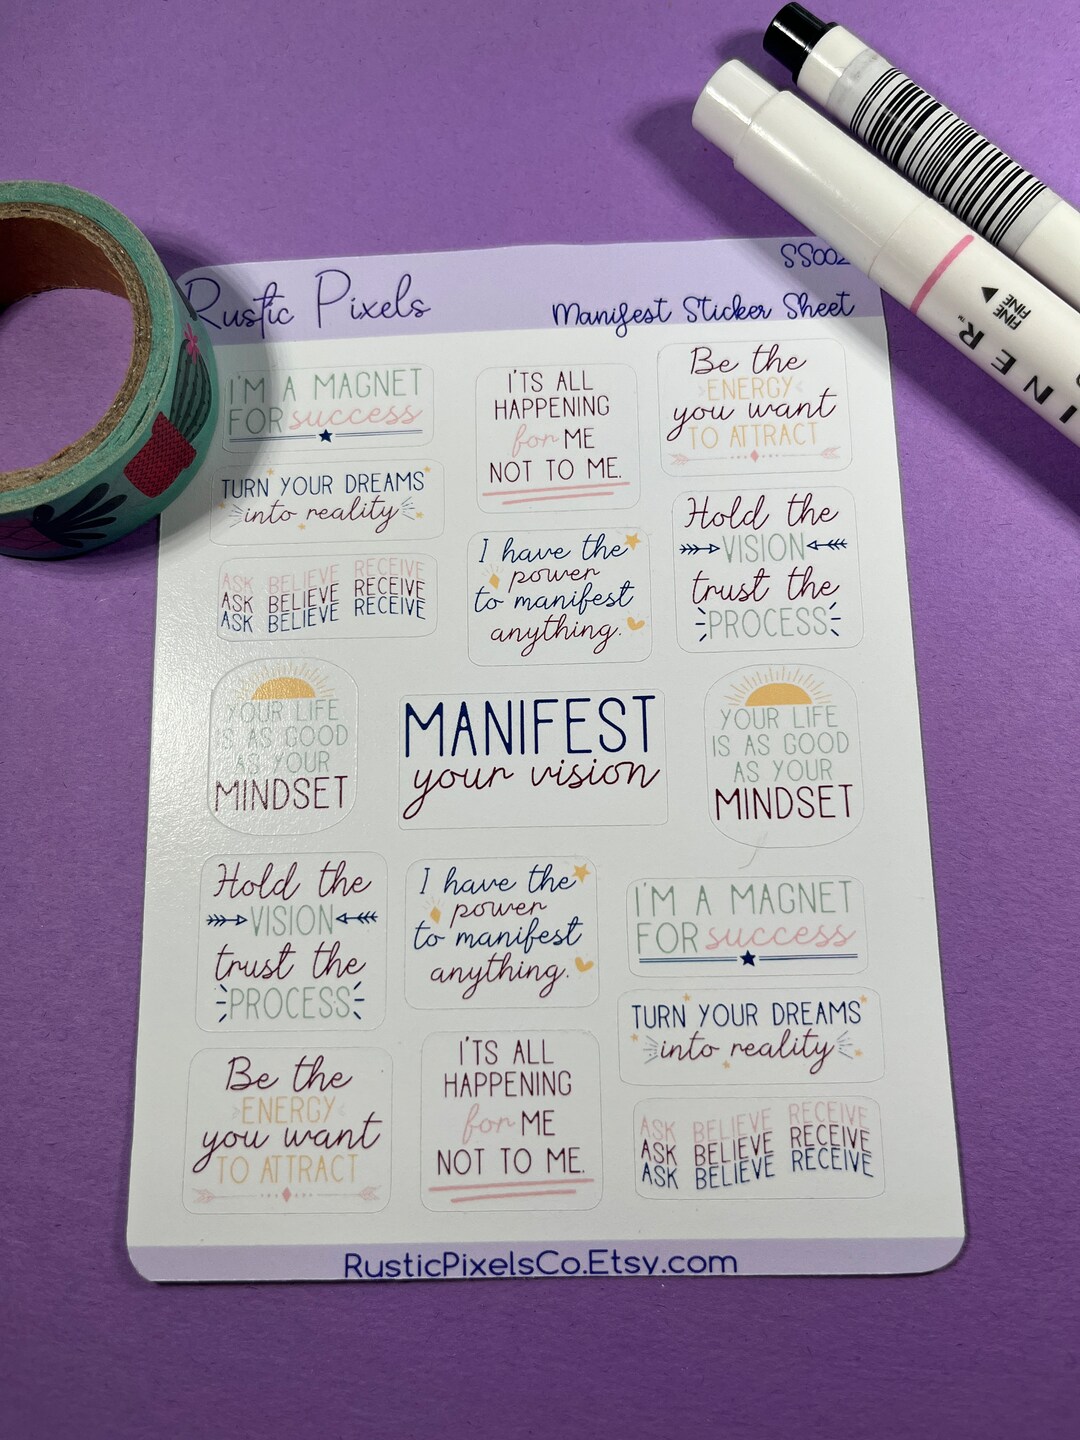 SS002
Rustic Pixels
Manifest Sticker Sheet
I'M A MAGNET
FOR success
I'TS ALL
HAPPENING
for ME
NOT TO ME.
Be the
ENERGY
you want
TO ATTRACT
TURN YOUR DREAMS
into reality
ASK BELIEVE RECEIVE
ASK BELIEVE RECEIVE
ASK BELIEVE RECEIVE
I have the
power
to manifest
anything.
Hold the
VISION
trust the
PROCESS
YOUR LIFE
IS AS GOOD
AS YOUR
MINDSET
MANIFEST
your vision
YOUR LIFE
IS AS GOOD
AS YOUR
MINDSET
Hold the
VISION
trust the
PROCESS
I have the
power
to manifest
anything.
I'M A MAGNET
FOR success
TURN YOUR DREAMS
into reality
Be the
ENERGY
you want
TO ATTRACT
I'TS ALL
HAPPENING
for ME
NOT TO ME.
ASK BELIEVE RECEIVE
ASK BELIEVE RECEIVE
ASK BELIEVE RECEIVE
RusticPixelsCo.Etsy.com
FINE
FINE